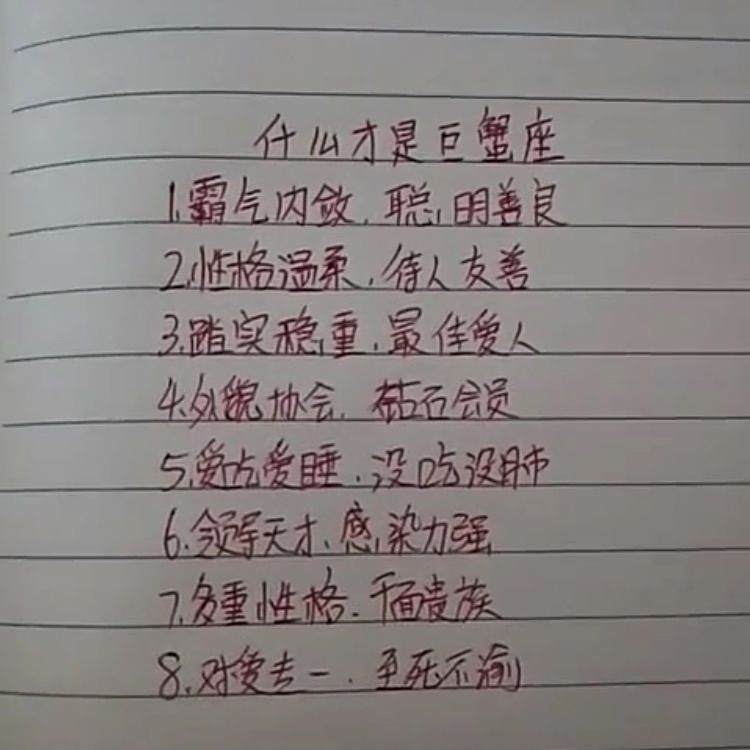 什么才是巨蟹座
1.霸气内敛、聪明善良
2.性格温柔、待人友善
3.踏实稳重、最佳爱人
4.外貌协会、钻石会员
5.爱吃爱睡、没吃没肺
6.领导天才、感染力强
7.多重性格、千面贵族
8.对爱专一、至死不渝